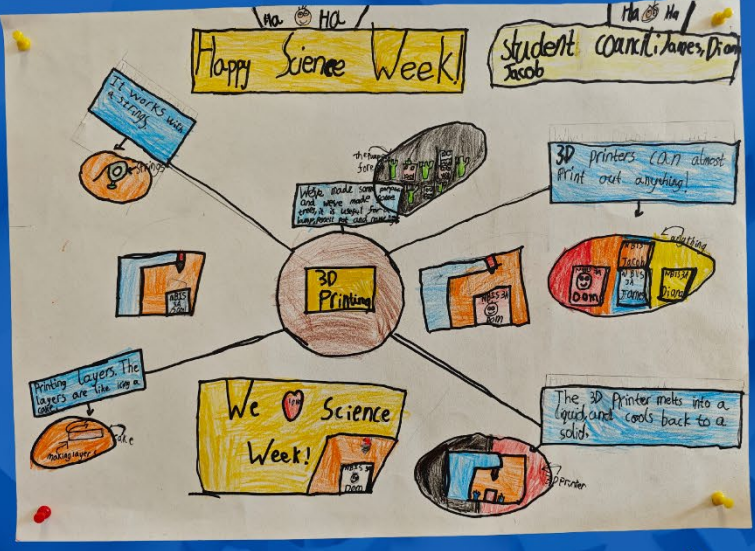 Ha Ha
Happy Science Week!
Ha Ha
student council: James, Dian
Jacob
It works with
a strings.
strings
We've made som
and we've made some
trees, it is useful for
3D printers can almost
Print out anything!
anything
NBIS
Jacob
NBIS 3A
Dom
NBIS
3A
James
NBIS 3A
Diana
3D
Printing
NBIS 3A
Dom
NBIS 3A
Dom
Printing layers. The
layers are like icing a
cake.
cake
making layer
We Science
Week!
NBIS 3A
Dom
The 3D Printer melts into a
liquid and cools back to a
solid.
Printer